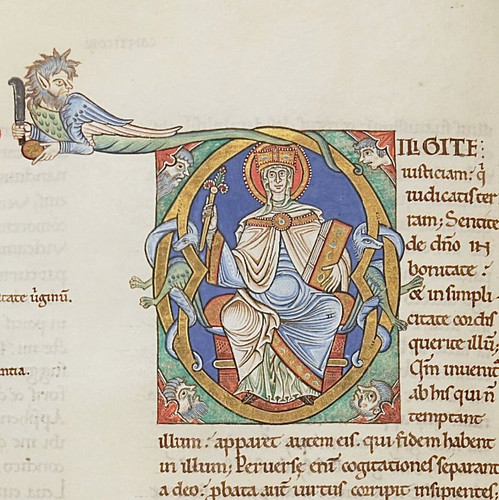 ILIGITE:
iusticiam: q̇
iudicatis ter
ram; Sentite
de dño IN
bonitate:
& in simpli
citate cordis
querite illū;
Qm̄ inueniť
ab his qui ñ
temptant
illum: apparet autem eis. qui fidem habent
in illum; Peruerse eni cogitationes separant
a deo: pbata aut uirtus corripit insipientes;